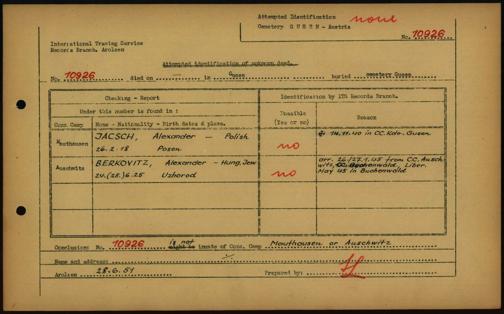 Attempted Identification none
Cemetery G U S E N - Austria
No. 10926
International Tracing Service
Records Branch, Arolsen
Attempted identification of unknown dead.
No. 10926 died on — in Gusen buried cemetery Gusen
Checking - Report
Identification by ITS Records Branch.
Under this number is found in :
Possible
(Yes or no)
Reason
Conc. Camp
Name - Nationality - Birth dates & place.
Mauthausen
JACSCH, Alexander — Polish
26.2.18 Posen
no
14.11.40 in CC.Kdo. Gusen.
Auschwitz
BERKOVITZ, Alexander - Hung. Jew
24.(25.)6.25 Uzhorod
no
arr. 26/27.1.45 from CC. Ausch
witz, Buchenwald, Liber.
May 45 in Buchenwald
Conclusion: No. 10926 is not inmate of Conc. Camp Mauthausen or Auschwitz
Name and address:
Arolsen 28.6.51 Prepared by: